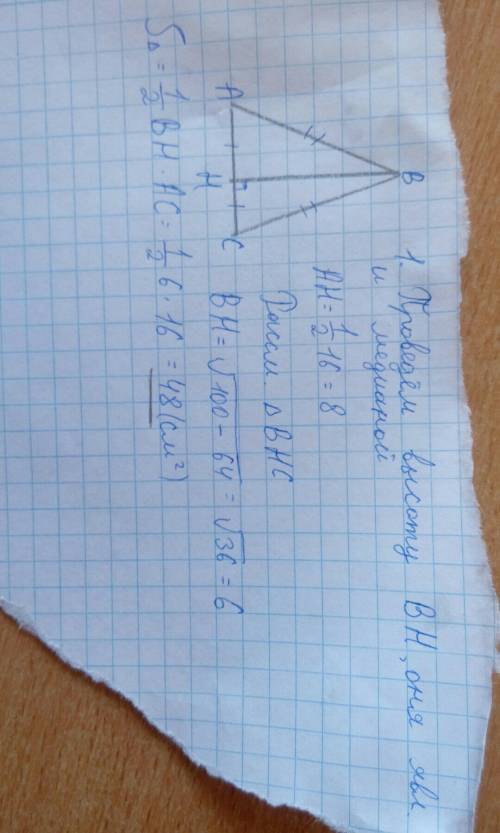 1. Проведём высоту BH, она явл.
и медианой
B
AH = 1/2 16 = 8
Рассм. △ BHC
A H C
BH = √100 - 64 = √36 = 6
S△ = 1/2 BH · AC = 1/2 6 · 16 = 48 (см²)